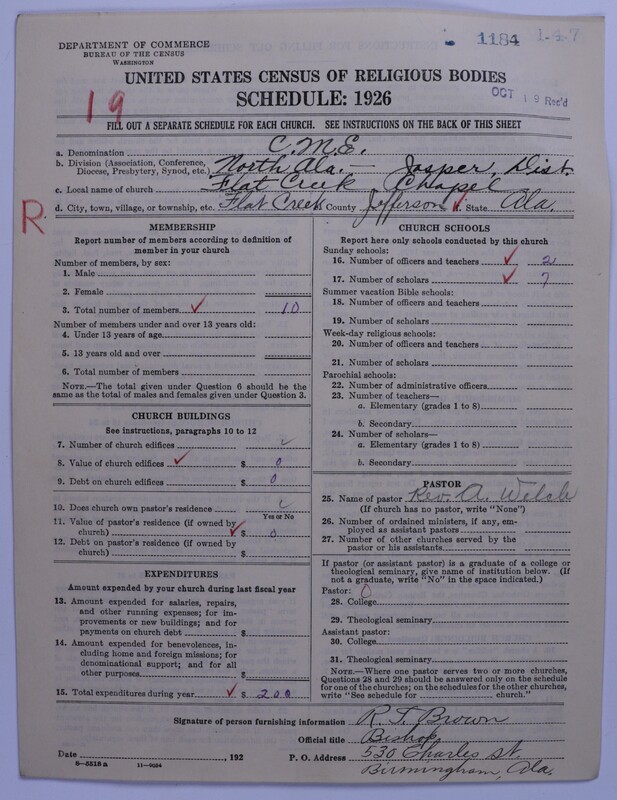 1184 1-4-7
DEPARTMENT OF COMMERCE
BUREAU OF THE CENSUS
WASHINGTON
UNITED STATES CENSUS OF RELIGIOUS BODIES
SCHEDULE: 1926
OCT 19 Rec'd
19
FILL OUT A SEPARATE SCHEDULE FOR EACH CHURCH. SEE INSTRUCTIONS ON THE BACK OF THIS SHEET
a. Denomination C.M.E.
b. Division (Association, Conference, Diocese, Presbytery, Synod, etc.) North Ala. — Jasper Dist.
c. Local name of church Flat Creek Chapel
d. City, town, village, or township, etc. Flat Creek County Jefferson State Ala.
R.
MEMBERSHIP
Report number of members according to definition of
member in your church
Number of members, by sex:
1. Male
2. Female
3. Total number of members 10
Number of members under and over 13 years old:
4. Under 13 years of age
5. 13 years old and over
6. Total number of members
NOTE.—The total given under Question 6 should be the
same as the total of males and females given under Question 3.
CHURCH BUILDINGS
See instructions, paragraphs 10 to 12
7. Number of church edifices
8. Value of church edifices $ 0
9. Debt on church edifices $ 0
10. Does church own pastor's residence
Yes or No
11. Value of pastor's residence (if owned by
church) $ 0
12. Debt on pastor's residence (if owned by
church) $
EXPENDITURES
Amount expended by your church during last fiscal year
13. Amount expended for salaries, repairs,
and other running expenses; for im-
provements or new buildings; and for
payments on church debt $
14. Amount expended for benevolences, in-
cluding home and foreign missions; for
denominational support; and for all
other purposes $
15. Total expenditures during year $ 200
CHURCH SCHOOLS
Report here only schools conducted by this church
Sunday schools:
16. Number of officers and teachers 2
17. Number of scholars 7
Summer vacation Bible schools:
18. Number of officers and teachers
19. Number of scholars
Week-day religious schools:
20. Number of officers and teachers
21. Number of scholars
Parochial schools:
22. Number of administrative officers
23. Number of teachers—
a. Elementary (grades 1 to 8)
b. Secondary
24. Number of scholars—
a. Elementary (grades 1 to 8)
b. Secondary
PASTOR
25. Name of pastor Rev. A. Welch
(If church has no pastor, write "None")
26. Number of ordained ministers, if any, em-
ployed as assistant pastors
27. Number of other churches served by the
pastor or his assistants
If pastor (or assistant pastor) is a graduate of a college or
theological seminary, give name of institution below. (If
not a graduate, write "No" in the space indicated.)
Pastor: 0
28. College
29. Theological seminary
Assistant pastor:
30. College
31. Theological seminary
NOTE.—Where one pastor serves two or more churches,
Questions 28 and 29 should be answered only on the schedule
for one of the churches; on the schedules for the other churches,
write "See schedule for church."
Signature of person furnishing information R. T. Brown
Official title Bishop
Date , 192 P. O. Address 530 Charles St.
8-5518 a 11-9054 Birmingham, Ala.